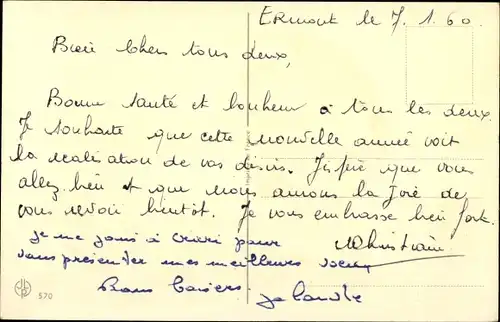 Ermont le 7. 1. 60.
Bien Chers tous deux,
Bonne santé et bonheur à tous les deux
Je souhaite que cette nouvelle année voit
la réalisation de vos désirs. J'espère que vous
allez bien et que nous aurons la joie de
vous revoir bientôt. Je vous embrasse bien fort.
Christiane
je me joins à pour
vous présenter mes meilleurs voeux
Bons baisers
570